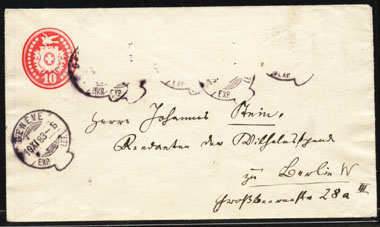 10
GENEVE
EXP.
EXP.
EXP.
Herrn Johannes Stein,
Rendanten der Wilhelmsspende
zu Berlin W
Großbeerenstr 28a III